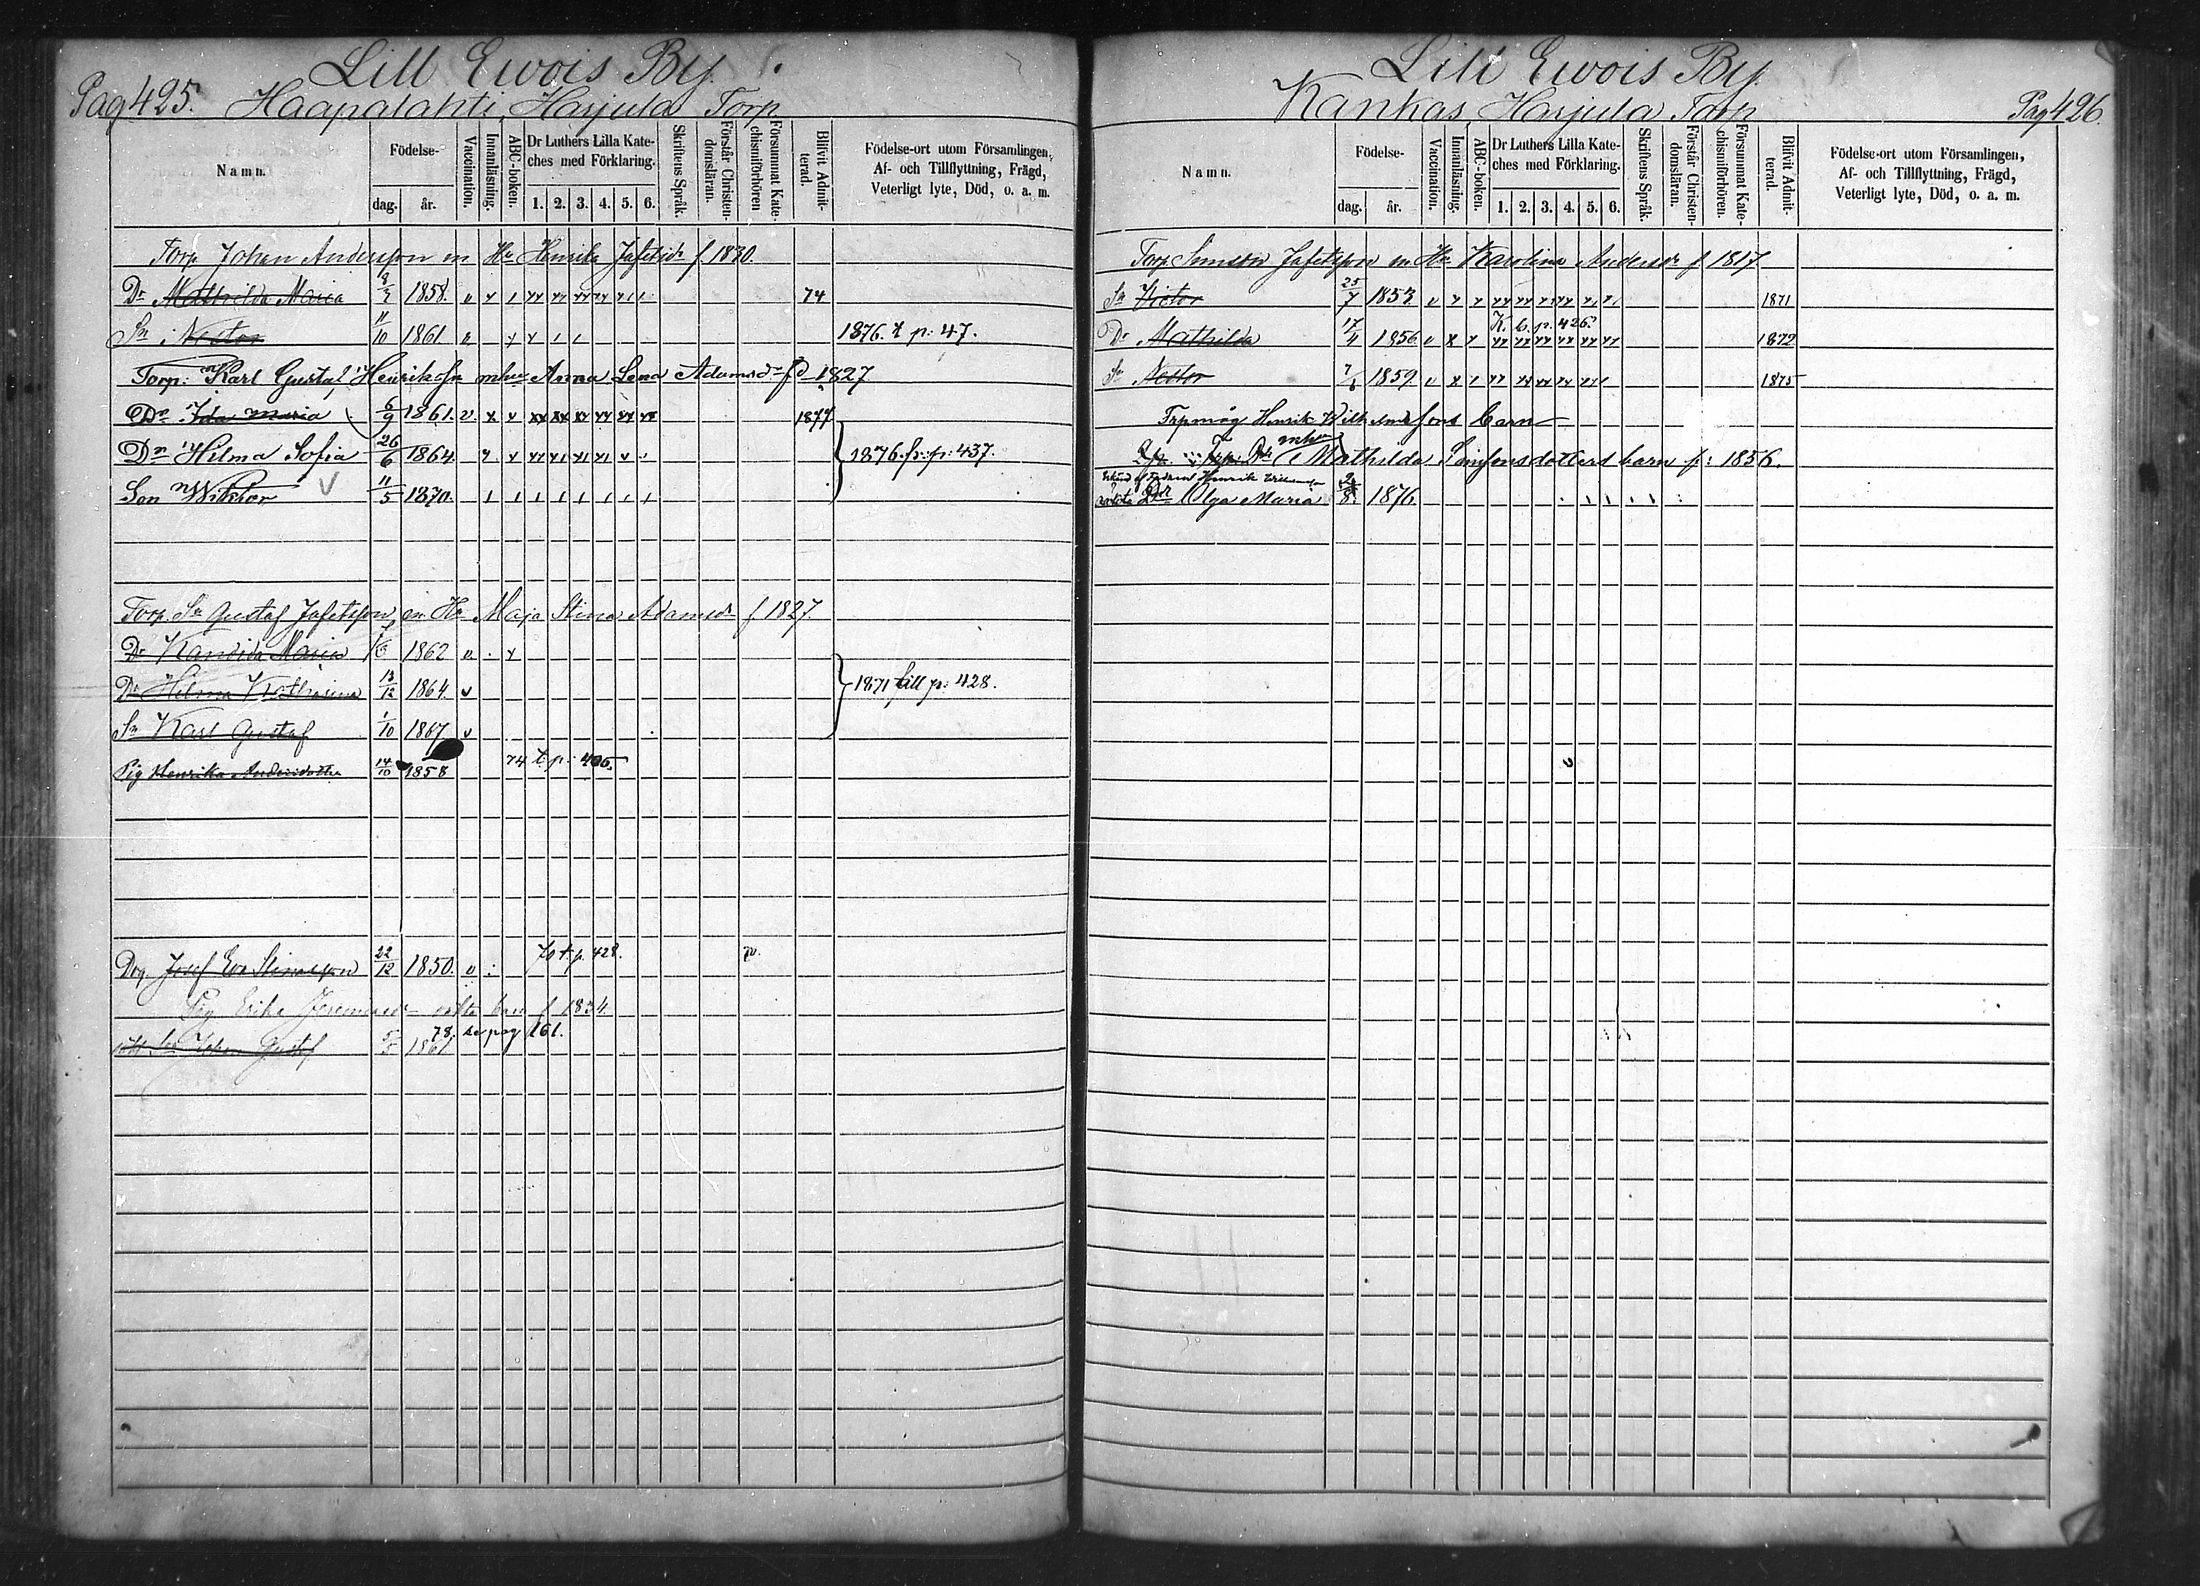 Lill Ewois By.
Pag 425. Haapalahti, Harjula Torp
Namn.
Födelse-
dag. år.
Vaccination.
Innanläsning.
ABC-boken.
Dr Luthers Lilla Kate-
ches med Förklaring.
1. 2. 3. 4. 5. 6.
Skriftens Språk.
Förstår Christen-
domsläran.
Försummat Kate-
chismiförhören
Blifvit Admit-
terad.
Födelse-ort utom Församlingen,
Af- och Tillflyttning, Frägd,
Veterligt lyte, Död, o. a. m.
Torp Johan Andersson m Hu Henrika Jafetsdr f 1830.
Dr Mathilda Maria 1858. 74
Sn Nestor 11/10 1861 1876. t p: 47.
Torp: Karl Gustaf Henriksson m hu Anna Lena Adamsdr f 1827
Dr Ida Maria 6/9 1861. 1877
Dr Hilma Sofia 26/6 1864 1876 fr: p: 437.
Son Wiktor 11/5 1870.
Torp. Sn Gustaf Jafetsson, m Hu Maja Stina Adamsdr f 1827.
Dr Kandida Maria 1862
Dr Hilma Katharina 13/12 1864. 1871 till p: 428.
Sn Karl Gustaf 1/10 1867
Pig Henrika Andersdotter 14/10 1858 74 t p: 406.
Drg. Josef Eva Stinasson 22/12 1850. 70 t p. 428. 70.
Pig Erika Jeremiasdr oäkta barn f 1834.
78. se pag 161.
Sn Johan Gustaf 1861
Lill Ewois By
Kankas, Harjula Torp Pag 426.
Namn.
Födelse-
dag. år.
Vaccination.
Innanläsning.
ABC-boken.
Dr Luthers Lilla Kate-
ches med Förklaring.
1. 2. 3. 4. 5. 6.
Skriftens Språk.
Förstår Christen-
domsläran.
Försummat Kate-
chismiförhören.
Blifvit Admit-
terad.
Födelse-ort utom Församlingen,
Af- och Tillflyttning, Frägd,
Veterligt lyte, Död, o. a. m.
Torp Simson Jafetsson m Hu Karolina Andersdr f 1817
Sn Victor 25/7 1853 1871
K. b. p. 426.
Dr Mathilda 17/4 1856 1872
Sn Nestor 1859. 1875
Torpmåg Henrik Wilhelmssons barn
mhu Mathilda Simsonsdotters barn f: 1856.
Henrik
Olga Maria 1876